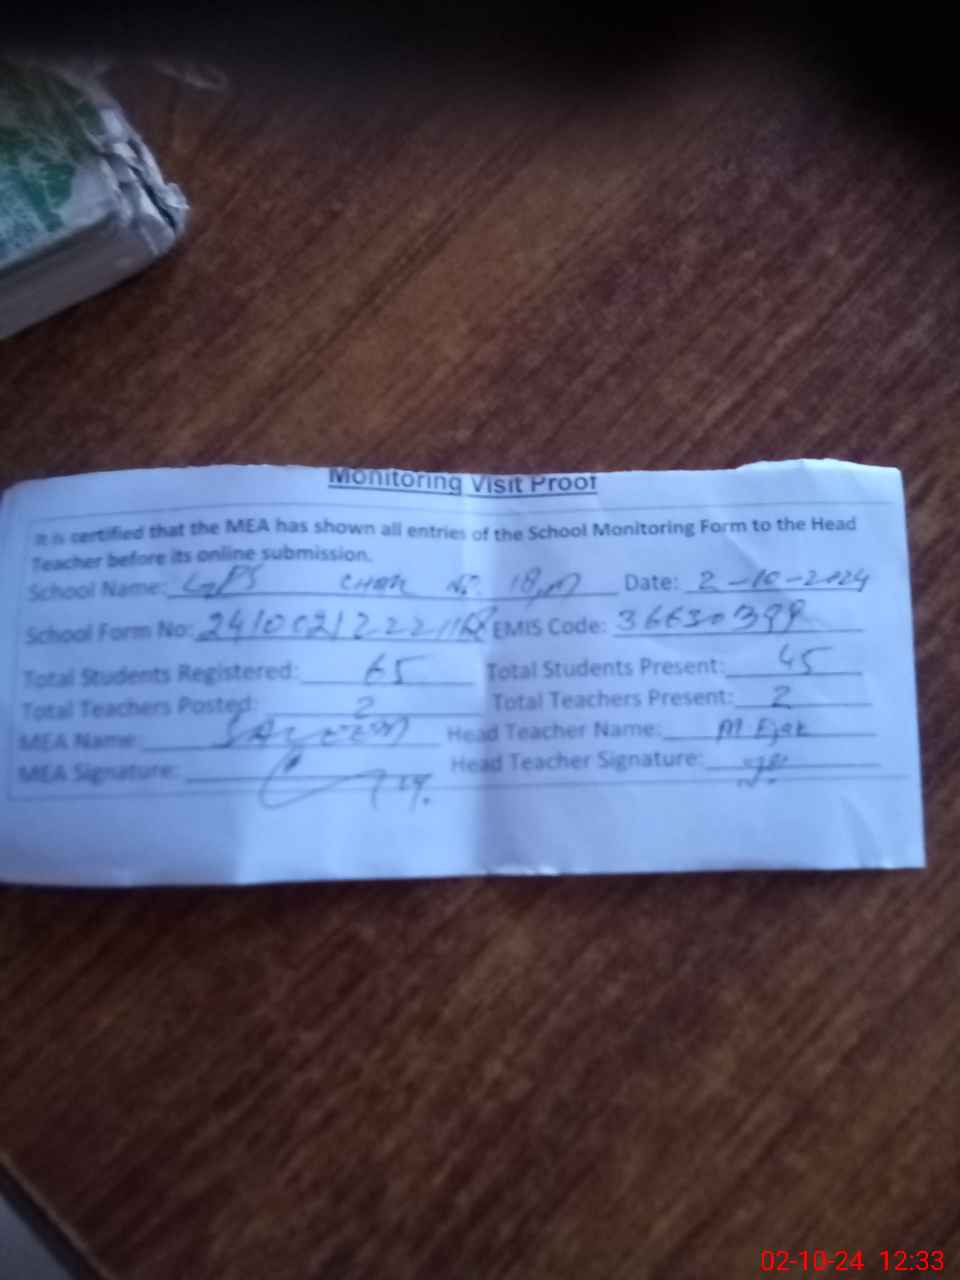 Monitoring Visit Proof
It is certified that the MEA has shown all entries of the School Monitoring Form to the Head
Teacher before its online submission.
School Name: GPS CHAK No. 18/M Date: 2-10-2024
School Form No: EMIS Code: 36630399
Total Students Registered: 65 Total Students Present: 45
Total Teachers Posted: 2 Total Teachers Present: 2
MEA Name: SALEEM Head Teacher Name: M Ejaz
MEA Signature: Head Teacher Signature:
02-10-24 12:33